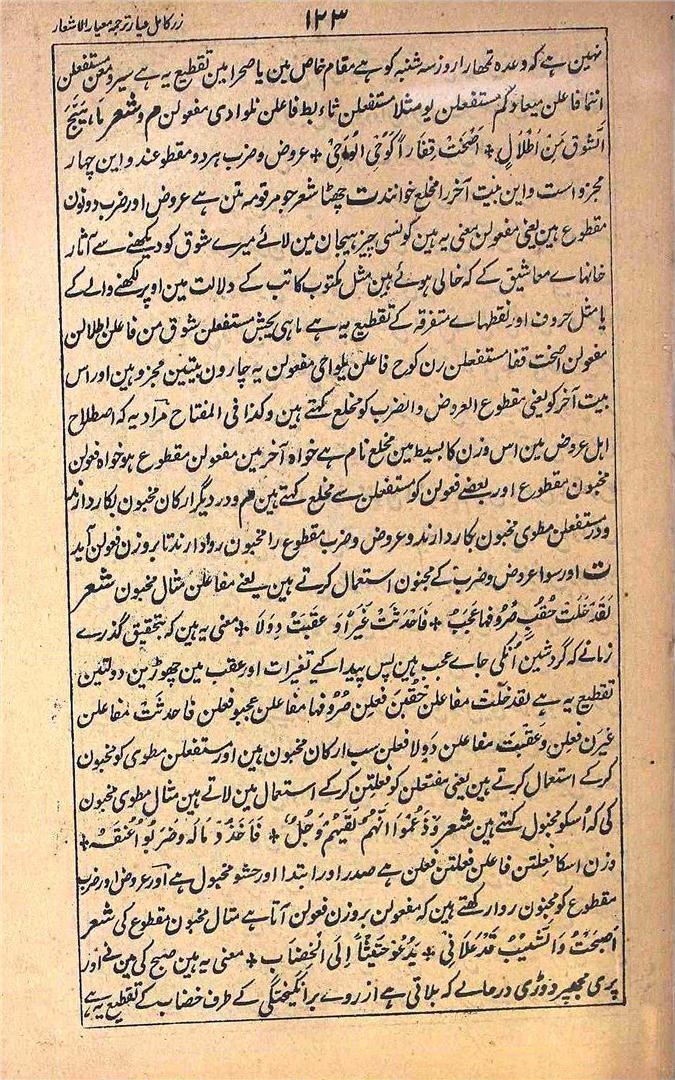 ۱۲۳
زر کامل عیار ترجمہ معیار الاشعار
نہین ہے کہ وعدہ تمھارا روز سہ شنبہ کو ہے مقام خاص مین یا صحرا مین تقطیع یہ ہے سیرو معن مستفعلن
انما فاعلن میعادکم مستفعلن یومثلا مستفعلن ثاء بط فاعلن نلوادی مفعولن م و شعر ما ہَیَّجَ
الشَّوقَ مِن اَطْلَالٍ + اَضْحَتْ قِفَاراً کَوَحْیِ الوَاحِیْ + عروض و ضرب ہر دو مقطوعند و این چہار
مجزو است و این بیت آخر را مخلع خوانند ت چھٹا شعر جو مرقومہ متن ہے عروض اور ضرب دونون
مقطوع ہین یعنی مفعولن معنی یہ ہین کونسی چیز ہیجان مین لائے میرے شوق کو دیکھنے سے آثار
خانہاے معاشیق کے کہ خالی ہوئے ہین مثل مکتوب کاتب کے دلالت مین اوپر لکھنے والے کے
یا مثل حروف اور نقطہاے متفرقہ کے تقطیع یہ ہے ماہی یجش مستفعلن شوق من فاعلن اطلالن
مفعولن اضحت قفا مستفعلن رن کوح فاعلن یلواحی مفعولن یہ چارون بیتین مجزو ہین اور اس
بیت آخر کو یعنی مقطوع العروض والضرب کو مخلع کہتے ہین و کذا فی المفتاح مراد یہ کہ اصطلاح
اہل عروض مین اس وزن کا بسیط مین مخلع نام ہے خواہ آخر مین مفعولن مقطوع ہو خواہ فعولن
مخبون مقطوع اور بعضے فعولن کو مستفعلن سے مخلع کہتے ہین م و در دیگر ارکان مخبون بکار دارند
و در مستفعلن مطوی مخبون بکار دارند و عروض و ضرب مقطوع را مخبون روا دارند تا بر وزن فعولن آید
ت اور سوا عروض و ضرب کے مخبون استعمال کرتے ہین یعنے مفاعلن مثال مخبون شعر
لَقَدْ خَلَتْ حُقُبٌ صُرُوفُہَا عَجَبٌ + فَاَحْدَثَتْ غِیَراً وَ عَقَّبَتْ دِوَلَا + معنی یہ ہین کہ بتحقیق گذرے
زمانے کہ گردشین اُنکی جاے عجب ہین پس پیدا کیے تغیرات اور عقب مین چھوڑین دولتین
تقطیع یہ ہے لقد خلت مفاعلن حقبن فعلن صروفہا مفاعلن عجبو فعلن فاحدثت مفاعلن
غیرن فعلن وعقبت مفاعلن دولا فعلن سب ارکان مخبون ہین اور مستفعلن مطوی کو مخبون
کرکے استعمال کرتے ہین یعنی مفتعلن کو فعلتن کرکے استعمال مین لاتے ہین مثال مطوی مخبون
کی کہ اُسکو مخبول کہتے ہین شعر وَزَعَمُوْا اَنَّہُمْ لَقِیَہُمْ رَجُلٌ + فَاَخَذُوْا مَالَہٗ وَضَرَبُوْا عُنُقَہٗ +
وزن اسکا فعلتن فاعلن فعلتن فعلن ہے صدر اور ابتدا اور حشو مخبول ہے اور عروض اور ضرب
مقطوع کو مخبون روا رکھتے ہین کہ مفعولن بروزن فعولن آتا ہے مثال مخبون مقطوع کی شعر
اَصْبَحْتُ وَالشَّیْبُ قَدْ عَلَانِیْ + یَدْعُوْ حَثِیْثاً اِلَی الخِضَابِ + معنی یہ ہین صبح کی مین نے اور
پیری مجھپر دوڑی درحالے کہ بلاتی ہے از روے برانگیختگی کے طرف خضاب کے تقطیع یہ ہے